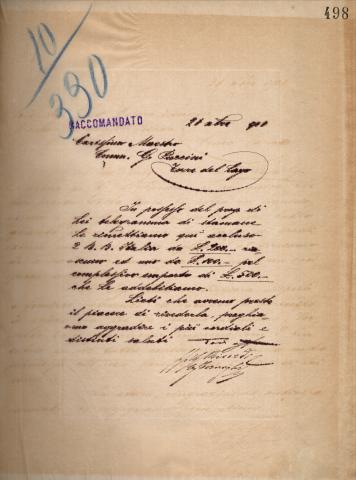 498
10
330
RACCOMANDATO
Carissimo Maestro
Comm. G. Puccini
Torre del Lago
In possesso del preg. di
Lei telegramma di stamane
le rimettiamo qui accluso
2 B. B. Italia da L. 200.-
cuno ed uno da L. 100.- pel
complessivo importo di L. 500.-
che Le addebitiamo.
Lieti che avremo presto
il piacere di rivederla, preghia-
mo aggradire i più cordiali e
distinti saluti